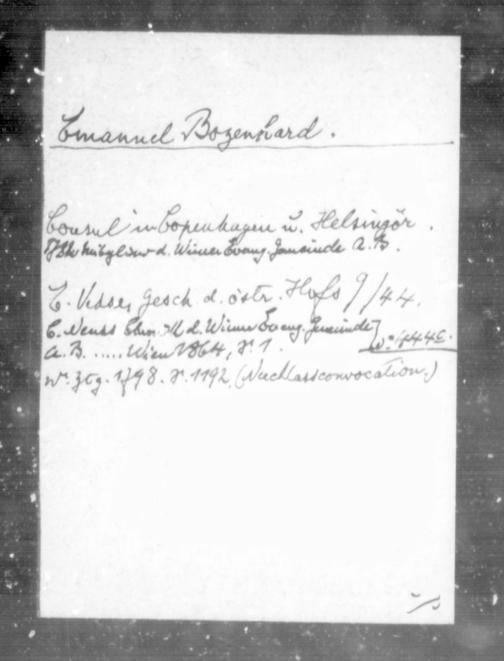 Emanuel Bozenhard.
Consul in Copenhagen u. Helsingör.
Mitglied d. Wiener Evang. Gemeinde A. B.
E. Vehse, Gesch. d. östr. Hofs 9/44.
C. Neuss Chron. d. Wiener Evang. Gemeinde
A. B. ..... Wien 1864, S. 1.
W. Ztg. 1798. S. 1192. (Nachlassconvocation.)